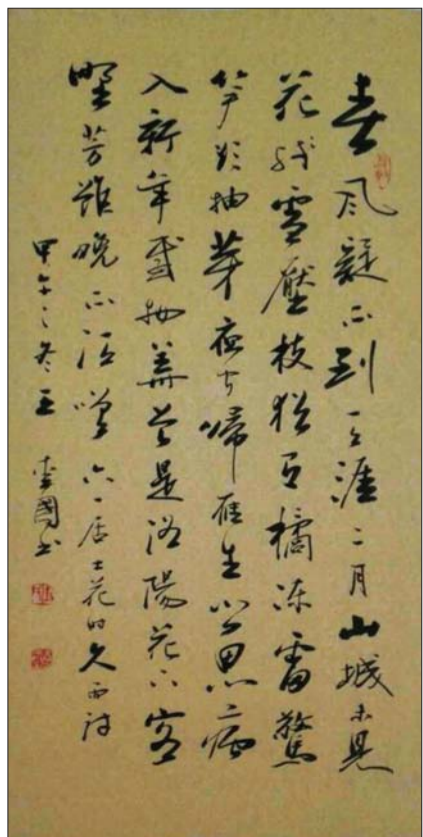 春風疑不到天涯二月山城未見
花殘雪壓枝猶有橘凍雷驚
筍欲抽芽夜聞歸雁生鄉思病
入新年感物華曾是洛陽花下客
野芳雖晚不須嗟 六一居士花時久雨詩
甲午之冬 國書